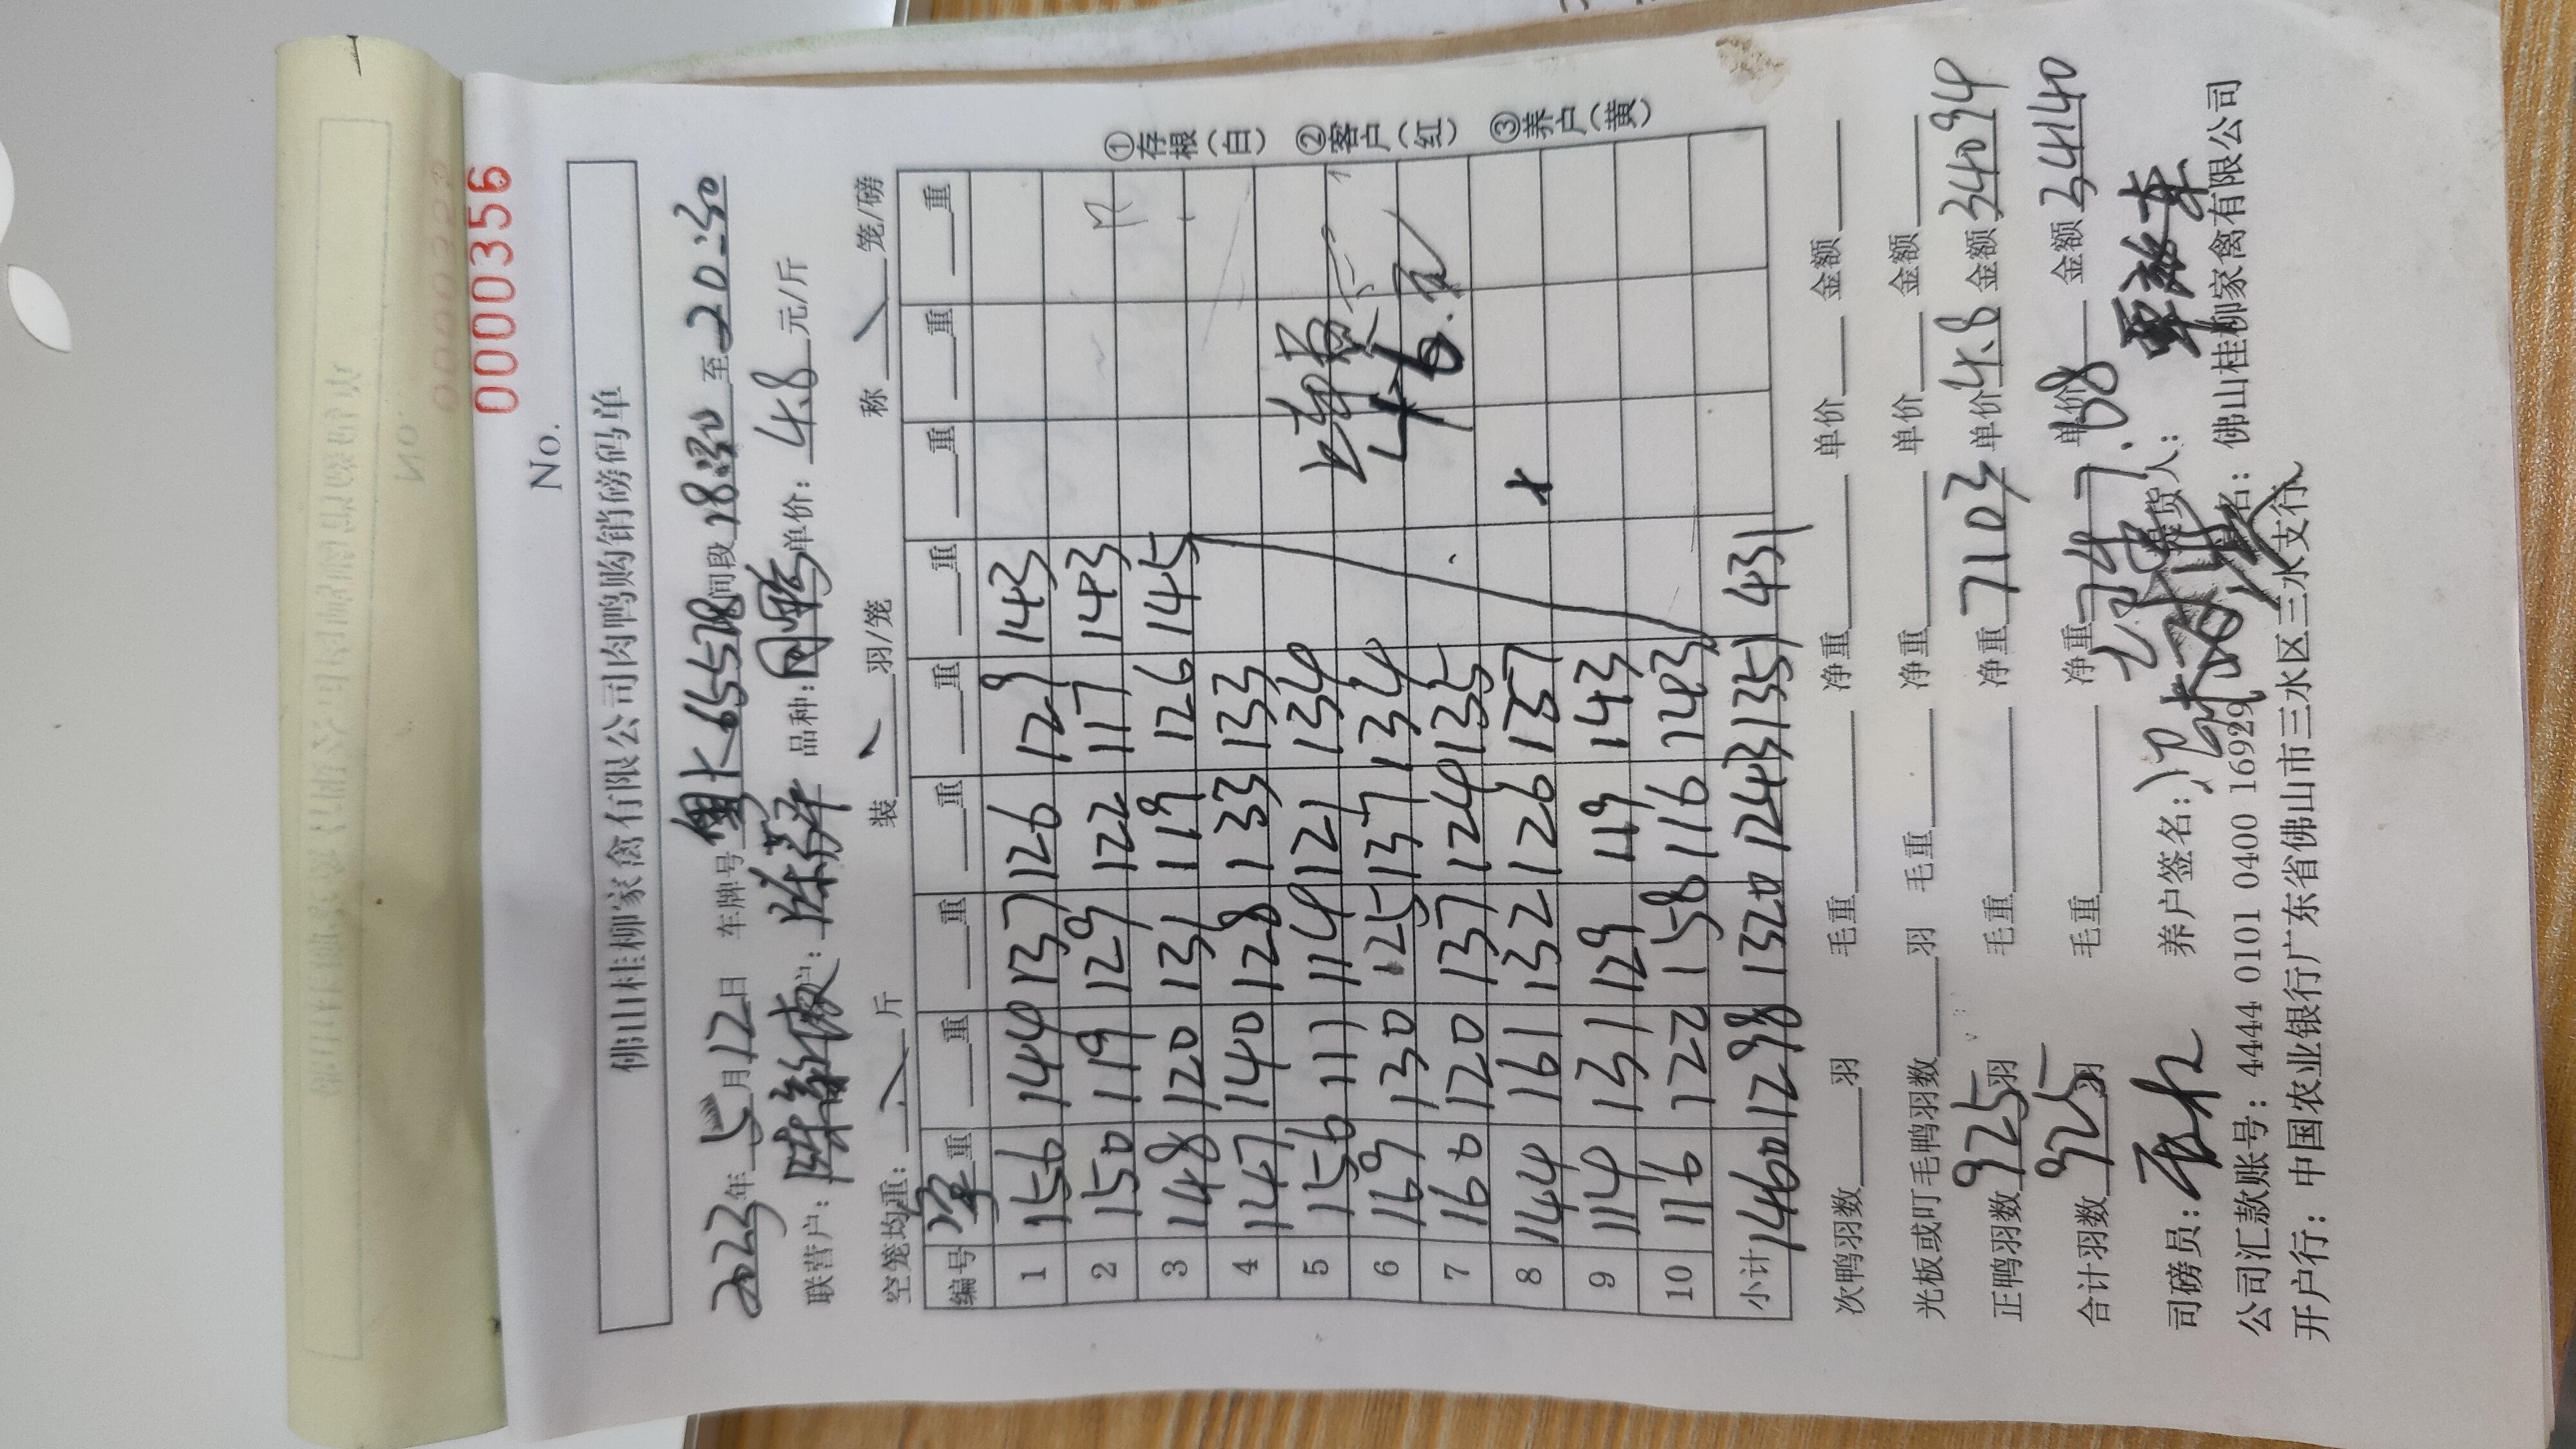 No. 0000356
佛山桂柳家禽有限公司肉鸭购销磅码单
2023年5月12日 车牌号 间段18:30至20:30
联营户: 户: 陈 品种: 单价: 4.8元/斤
空笼均重: 斤 装 羽/笼 称 笼/磅
编号 重 重 重 重 重 重 重 重 重
1 156 144 137 126 129 143
2 150 119 129 122 117 143
3 148 120 131 119 126 145
4 147 140 128 133 133
5 156 111 114 121 134
6 169 130 125 137 134
7 160 120 137 124 135
8 144 161 132 126 157
9 114 131 129 119 143
10 116 122 158 116 143
小计 1460 1298 1320 1243 1351 431
①存根(白) ②客户(红) ③养户(黄)
次鸭羽数 羽 毛重 净重 单价 金额
光板或叮毛鸭羽数 羽 毛重 净重 单价 金额
正鸭羽数925羽 毛重 净重7103 单价4.8 金额34094
合计羽数925羽 毛重 净重 单价 金额34140
司磅员: 养户签名: 货人:
公司汇款账号: 4444 0101 0400 16929 名: 佛山桂柳家禽有限公司
开户行: 中国农业银行广东省佛山市三水区三水支行